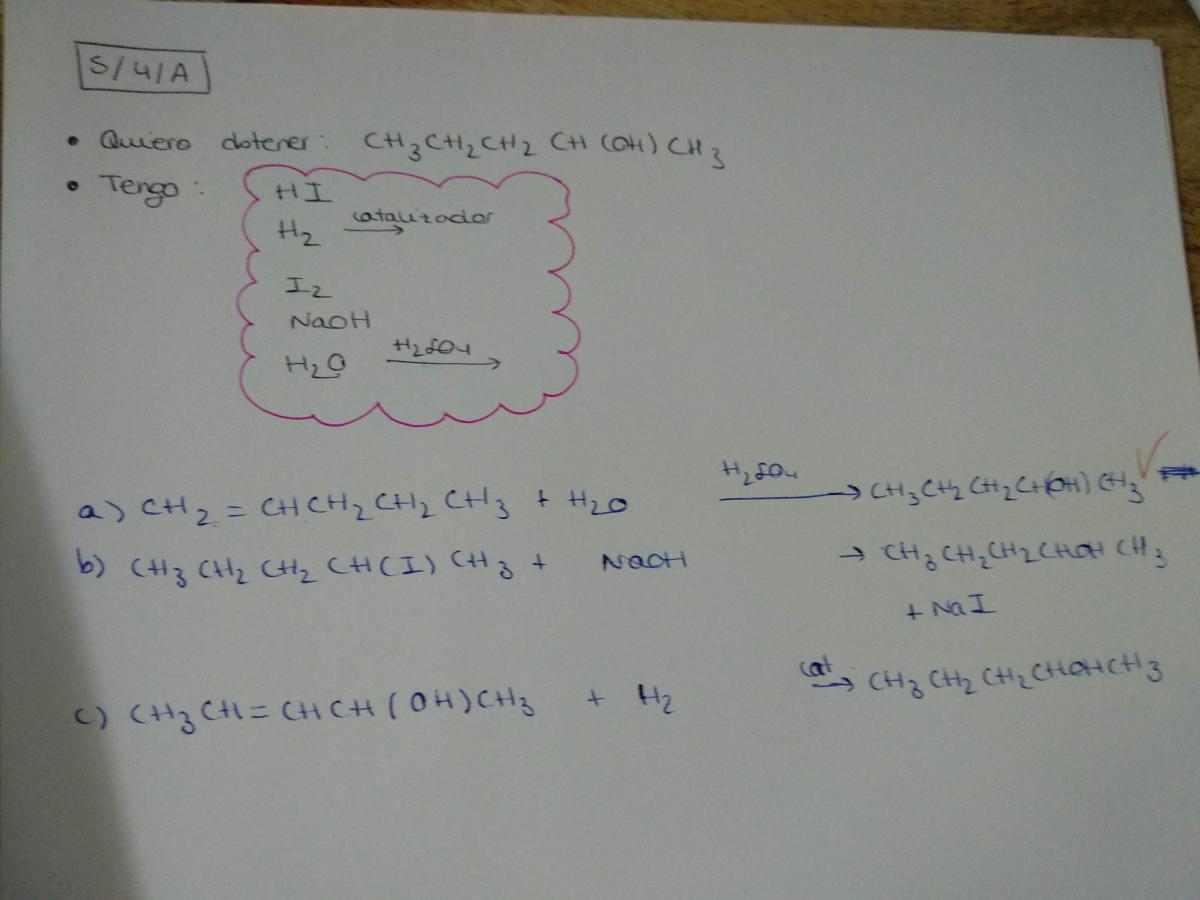 S/4/A
• Quiero obtener: CH₃CH₂CH₂CH(OH)CH₃
• Tengo:
HI
H₂ catalizador →
I₂
NaOH
H₂O H₂SO₄ →
a) CH₂=CHCH₂CH₂CH₃ + H₂O H₂SO₄ → CH₃CH₂CH₂CH(OH)CH₃ ✓
b) CH₃CH₂CH₂CH(I)CH₃ + NaOH → CH₃CH₂CH₂CHOHCH₃
+ NaI
c) CH₃CH=CHCH(OH)CH₃ + H₂ cat → CH₃CH₂CH₂CHOHCH₃